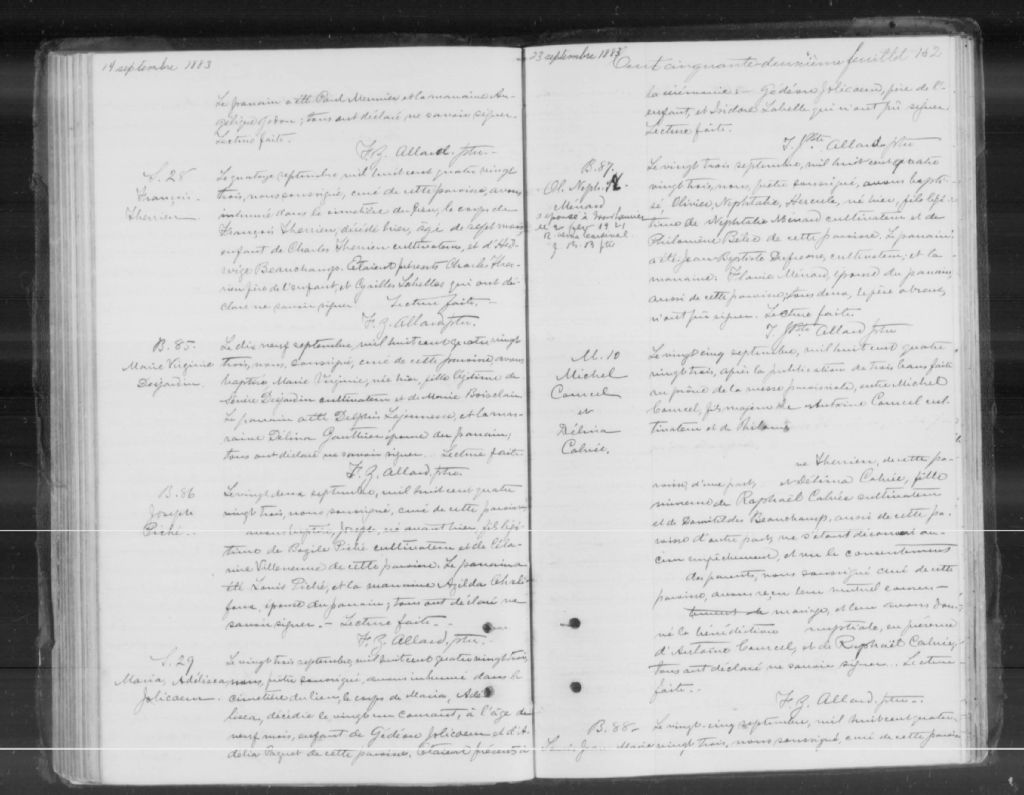 14 septembre 1883
Le parrain a été Paul Meunier et la marraine An-
gélique Godon; tous ont déclaré ne savoir signer.
Lecture faite.
F. Z. Allard, ptre.
S. 28
François
Therrien
Le quatorze septembre, mil huit cent quatre vingt
trois, nous soussigné, curé de cette paroisse, avons
inhumé dans le cimetière du lieu, le corps de
François Therrien, décédé hier, âgé de sept mois,
enfant de Charles Therrien cultivateur, et d'Hed-
wige Beauchamp. Etaient présents Charles Ther-
rien père de l'enfant, et Labelle qui ont dé-
claré ne savoir signer. Lecture faite.
F. Z. Allard, ptre.
B. 85
Marie Virginie
Desjardin
Le dix neuf septembre, mil huit cent quatre vingt
trois, nous, soussigné, curé de cette paroisse avons
baptisé Marie Virginie, née hier, fille légitime de
Desjardin cultivateur et de Marie Boisclair
Le parrain a été Delphis Lajeunesse, et la mar-
raine Délina Gauthier épouse du parrain;
tous ont déclaré ne savoir signer. Lecture faite
F. Z. Allard, ptre.
B. 86
Joseph
Piché
Le vingt deux septembre, mil huit cent quatre
vingt trois, nous soussigné, curé de cette paroisse,
avons baptisé, Joseph, né avant hier, fils légi-
time de Bazile Piché cultivateur et de
Villeneuve de cette paroisse. Le parrain a
été Louis Piché, et la marraine Azilda
épouse du parrain; tous ont déclaré ne
savoir signer. - Lecture faite. -
F. Z. Allard, ptre.
S. 29
Maria, Adélisca
Jolicoeur
Le vingt trois septembre, mil huit cent quatre vingt trois,
nous, prêtre soussigné, avons inhumé dans le
cimetière du lieu, le corps de Maria, Adé-
lisca, décédée le vingt un courant, à l'âge de
neuf mois, enfant de Gédéon Jolicoeur et d'A-
délia Paquet de cette paroisse. Etaient présents à
23 septembre 1883
Cent cinquante-deuxième feuillet 152
la cérémonie: Gédéon Jolicoeur, père de l'
enfant, et Isidore Labelle qui n'ont pu signer.
Lecture faite.
J. Bte Allard, ptre
B. 87
Ol. Nepht. H.
Ménard
épousé à
le 2 1921
Le vingt trois septembre, mil huit cent quatre
vingt trois, nous, prêtre soussigné, avons bapti-
sé Olivier, Nephtalie, Hercule, né hier, fils légi-
time de Nephtalie Ménard cultivateur et de
Philomène de cette paroisse. Le parrain
a été Jean-Baptiste Dufresne, cultivateur, et la
marraine Flavie Ménard, épouse du parrain
aussi de cette paroisse; tous deux, le père absent,
n'ont pu signer. Lecture faite.
J. Bte Allard ptre
M. 10
Michel
Courcel
et
Délina
Cabrée.
Le vingt cinq septembre, mil huit cent quatre
vingt trois, après la publication de trois bans faite
au prône de la messe paroissiale, entre Michel
Courcel, fils majeur de Antoine Courcel cul-
tivateur et de Philomè
ne Therrien, de cette pa-
roisse, d'une part, et Délina Cabrée, fille
mineure de Raphaël Cabrée cultivateur
et de Domitilde Beauchamp, aussi de cette pa-
roisse d'autre part; ne s'étant découvert au-
cun empêchement, et vu le consentement
des parents, nous soussigné curé de cette
paroisse, avons reçu leur mutuel consen-
tement de mariage, et leur avons don-
né la bénédiction nuptiale, en présence
d'Antoine Courcel, et de Raphaël Cabrée,
tous ont déclaré ne savoir signer. Lecture
faite. -
F. Z. Allard, ptre.
B. 88
Marie
Le vingt-cinq septembre, mil huit cent quatre
vingt trois, nous soussigné, curé de cette paroisse